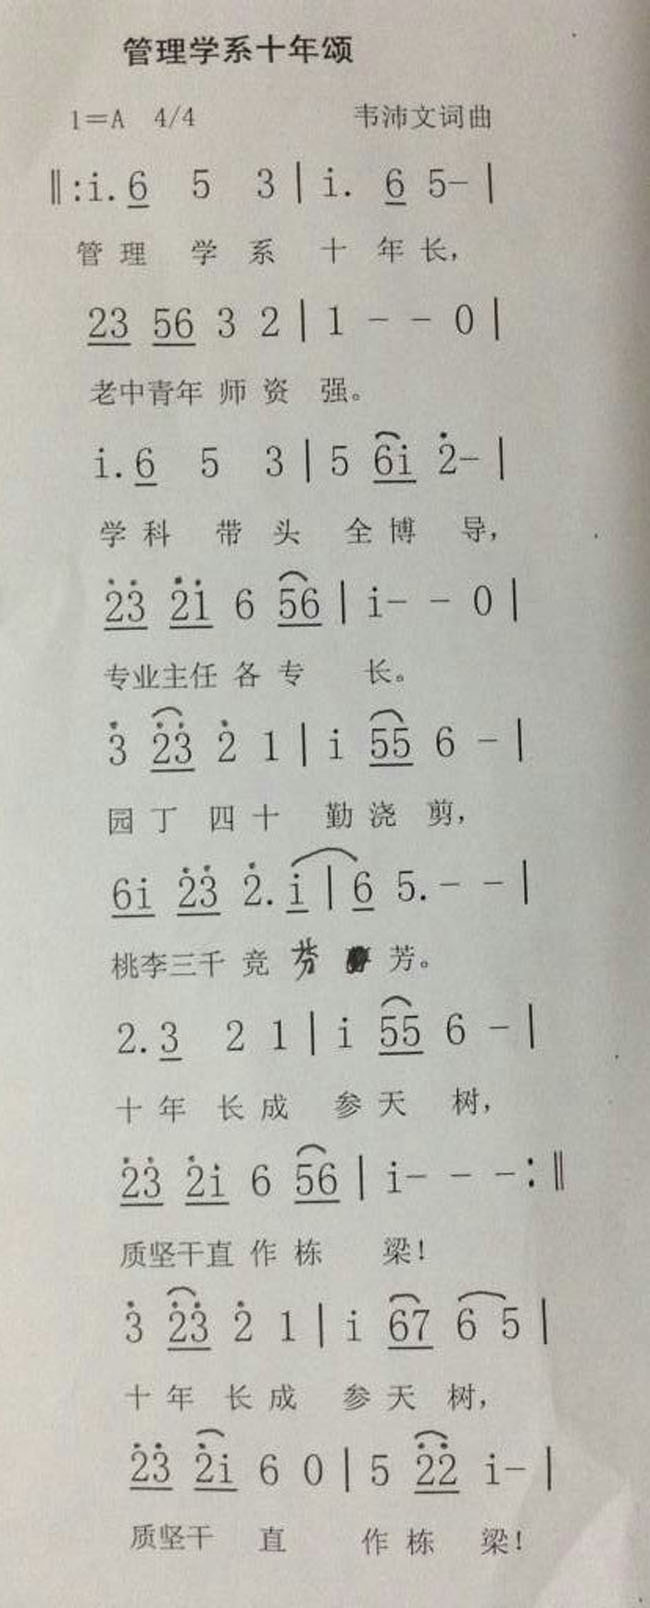 管理学系十年颂
1=A 4/4 韦沛文词曲
‖:i. 6 5 3 | i. 6 5- |
管 理 学 系 十 年 长，
23 56 3 2 | 1 - - 0 |
老中青年 师 资 强。
i. 6 5 3 | 5 6i 2- |
学 科 带 头 全 博 导，
23 21 6 56 | i- - 0 |
专业主任 各 专 长。
3 23 2 1 | i 55 6 - |
园 丁 四 十 勤 浇 剪，
6i 23 2. i | 6 5. - - |
桃李三千 竞 芬 芳。
2. 3 2 1 | i 55 6 - |
十 年 长 成 参 天 树，
23 2i 6 56 | i- - -:‖
质坚干直 作 栋 梁！
3 23 2 1 | i 67 6 5 |
十 年 长 成 参 天 树，
23 2i 6 0 | 5 22 i- |
质坚干 直 作 栋 梁！